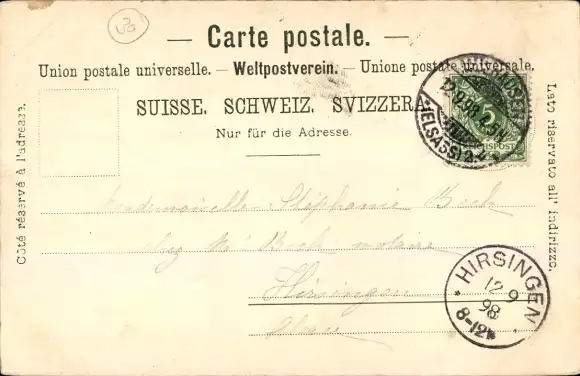 — Carte postale. —
Union postale universelle. — Weltpostverein. — Unione postale universale.
SUISSE. SCHWEIZ. SVIZZERA
Nur für die Adresse.
Côté réservé à l'adresse.
Lato riservato all' indirizzo.
REICHSPOST
5
(ELSASS)
Mademoiselle Stéphanie Beck
chez Mr Beck notaire
Hirsingen
Alsace
HIRSINGEN
12 9
98
8-12V